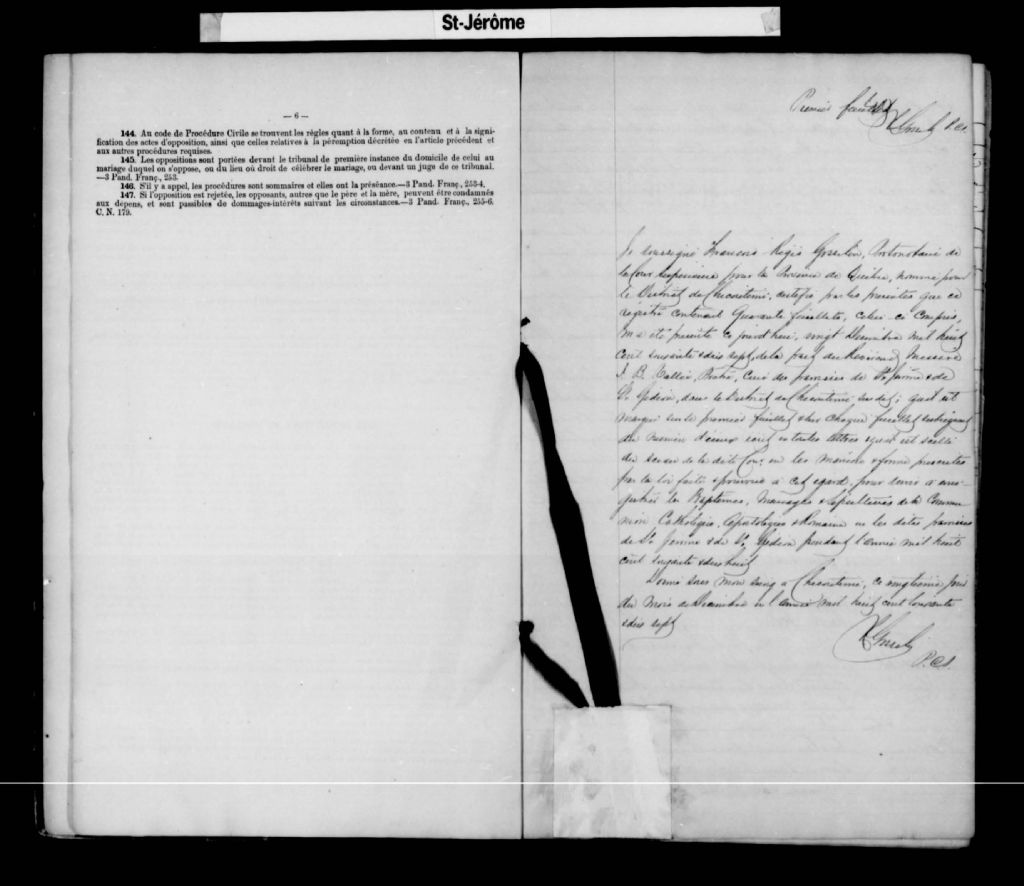 St-Jérôme
— 6 —
144. Au code de Procédure Civile se trouvent les règles quant à la forme, au contenu et à la signi-
fication des actes d'opposition, ainsi que celles relatives à la péremption décrétée en l'article précédent et
aux autres procédures requises.
145. Les oppositions sont portées devant le tribunal de première instance du domicile de celui au
mariage duquel on s'oppose, ou du lieu où droit de célébrer le mariage, ou devant un juge de ce tribunal.
—3 Pand. Franç., 253.
146. S'il y a appel, les procédures sont sommaires et elles ont la préséance.—3 Pand. Franç., 253-4.
147. Si l'opposition est rejetée, les opposants, autres que le père et la mère, peuvent être condamnés
aux dépens, et sont passibles de dommages-intérêts suivant les circonstances.—3 Pand. Franç., 255-6.
C. N. 179.
Premier feuillet
P.C.S.
Je soussigné François Régis Gosselin, Protonotaire de
la Cour Supérieure pour la Province de Québec, nommé pour
le District de Chicoutimi, certifie par les présentes que ce
régistre contenant Quarante feuillets, celui-ci compris,
m'a été présenté ce jourd'hui, vingt Décembre mil huit
cent soixante & dix sept, de la part du Révérend Messire
J. B. Vallée, Prêtre, Curé des paroisses de St. Jérôme & de
St. Gédéon, dans le District de Chicoutimi susdit; qu'il est
marqué sur le premier feuillet & sur chaque feuillet subséquent
du numéro d'iceux écrit en toutes lettres & qu'il est scellé
du sceau de la dite Cour en la manière & forme prescrites
par la loi faite & pourvue à cet égard, pour servir à enre-
gistrer les Baptêmes, Mariages & Sépultures de la Commu-
nion Catholique, Apostolique & Romaine en les dites paroisses
de St. Jérôme & de St. Gédéon pendant l'année mil huit
cent soixante & dix huit
Donné sous mon seing à Chicoutimi, ce vingtième jour
du mois de Décembre en l'année mil huit cent soixante
& dix sept
P.C.S.